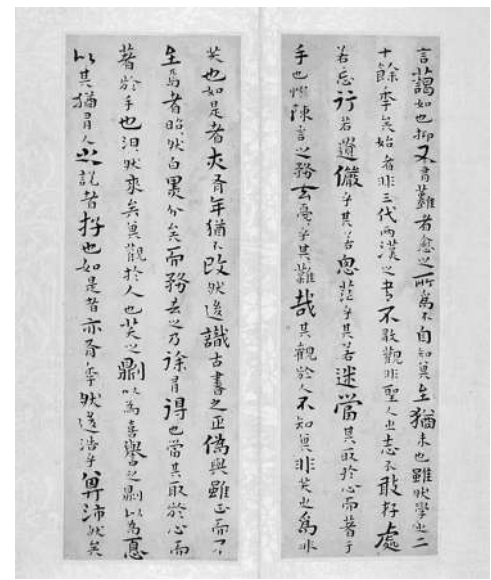 言藹如也抑又有難者愈之所為不自知其至猶未也雖然學之二
十餘年矣始者非三代兩漢之書不敢觀非聖人之志不敢存處
若忘行若遺儼乎其若思茫乎其若迷當其取於心而著于
手也惟陳言之務去戛乎其難哉其觀於人不知其非笑之為非
笑也如是者亦有年猶不改然後識古書之正偽與雖正而不
至焉者昭〻然白黑分矣而務去之乃徐有得也當其取於心而
著於手也汩〻然來矣其觀於人也笑之則以為喜譽之則以為憂
以其猶有人之說者存也如是者亦有年然後浩乎其沛然矣